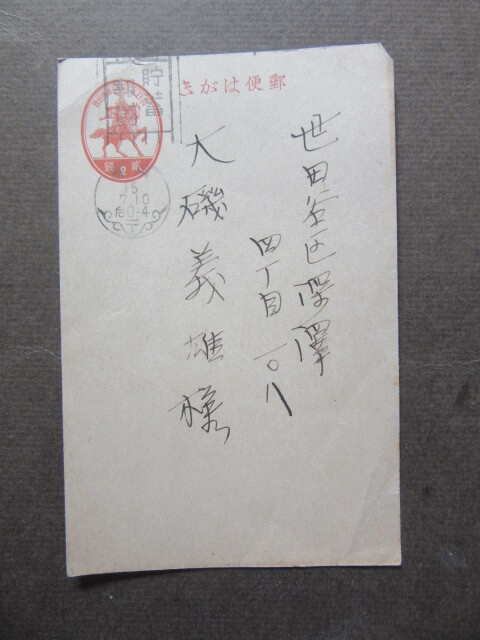 郵便はがき
世田谷区深澤
四丁目一〇八
大磯義雄様
貯蓄
貳銭
15
7.10
后0-4